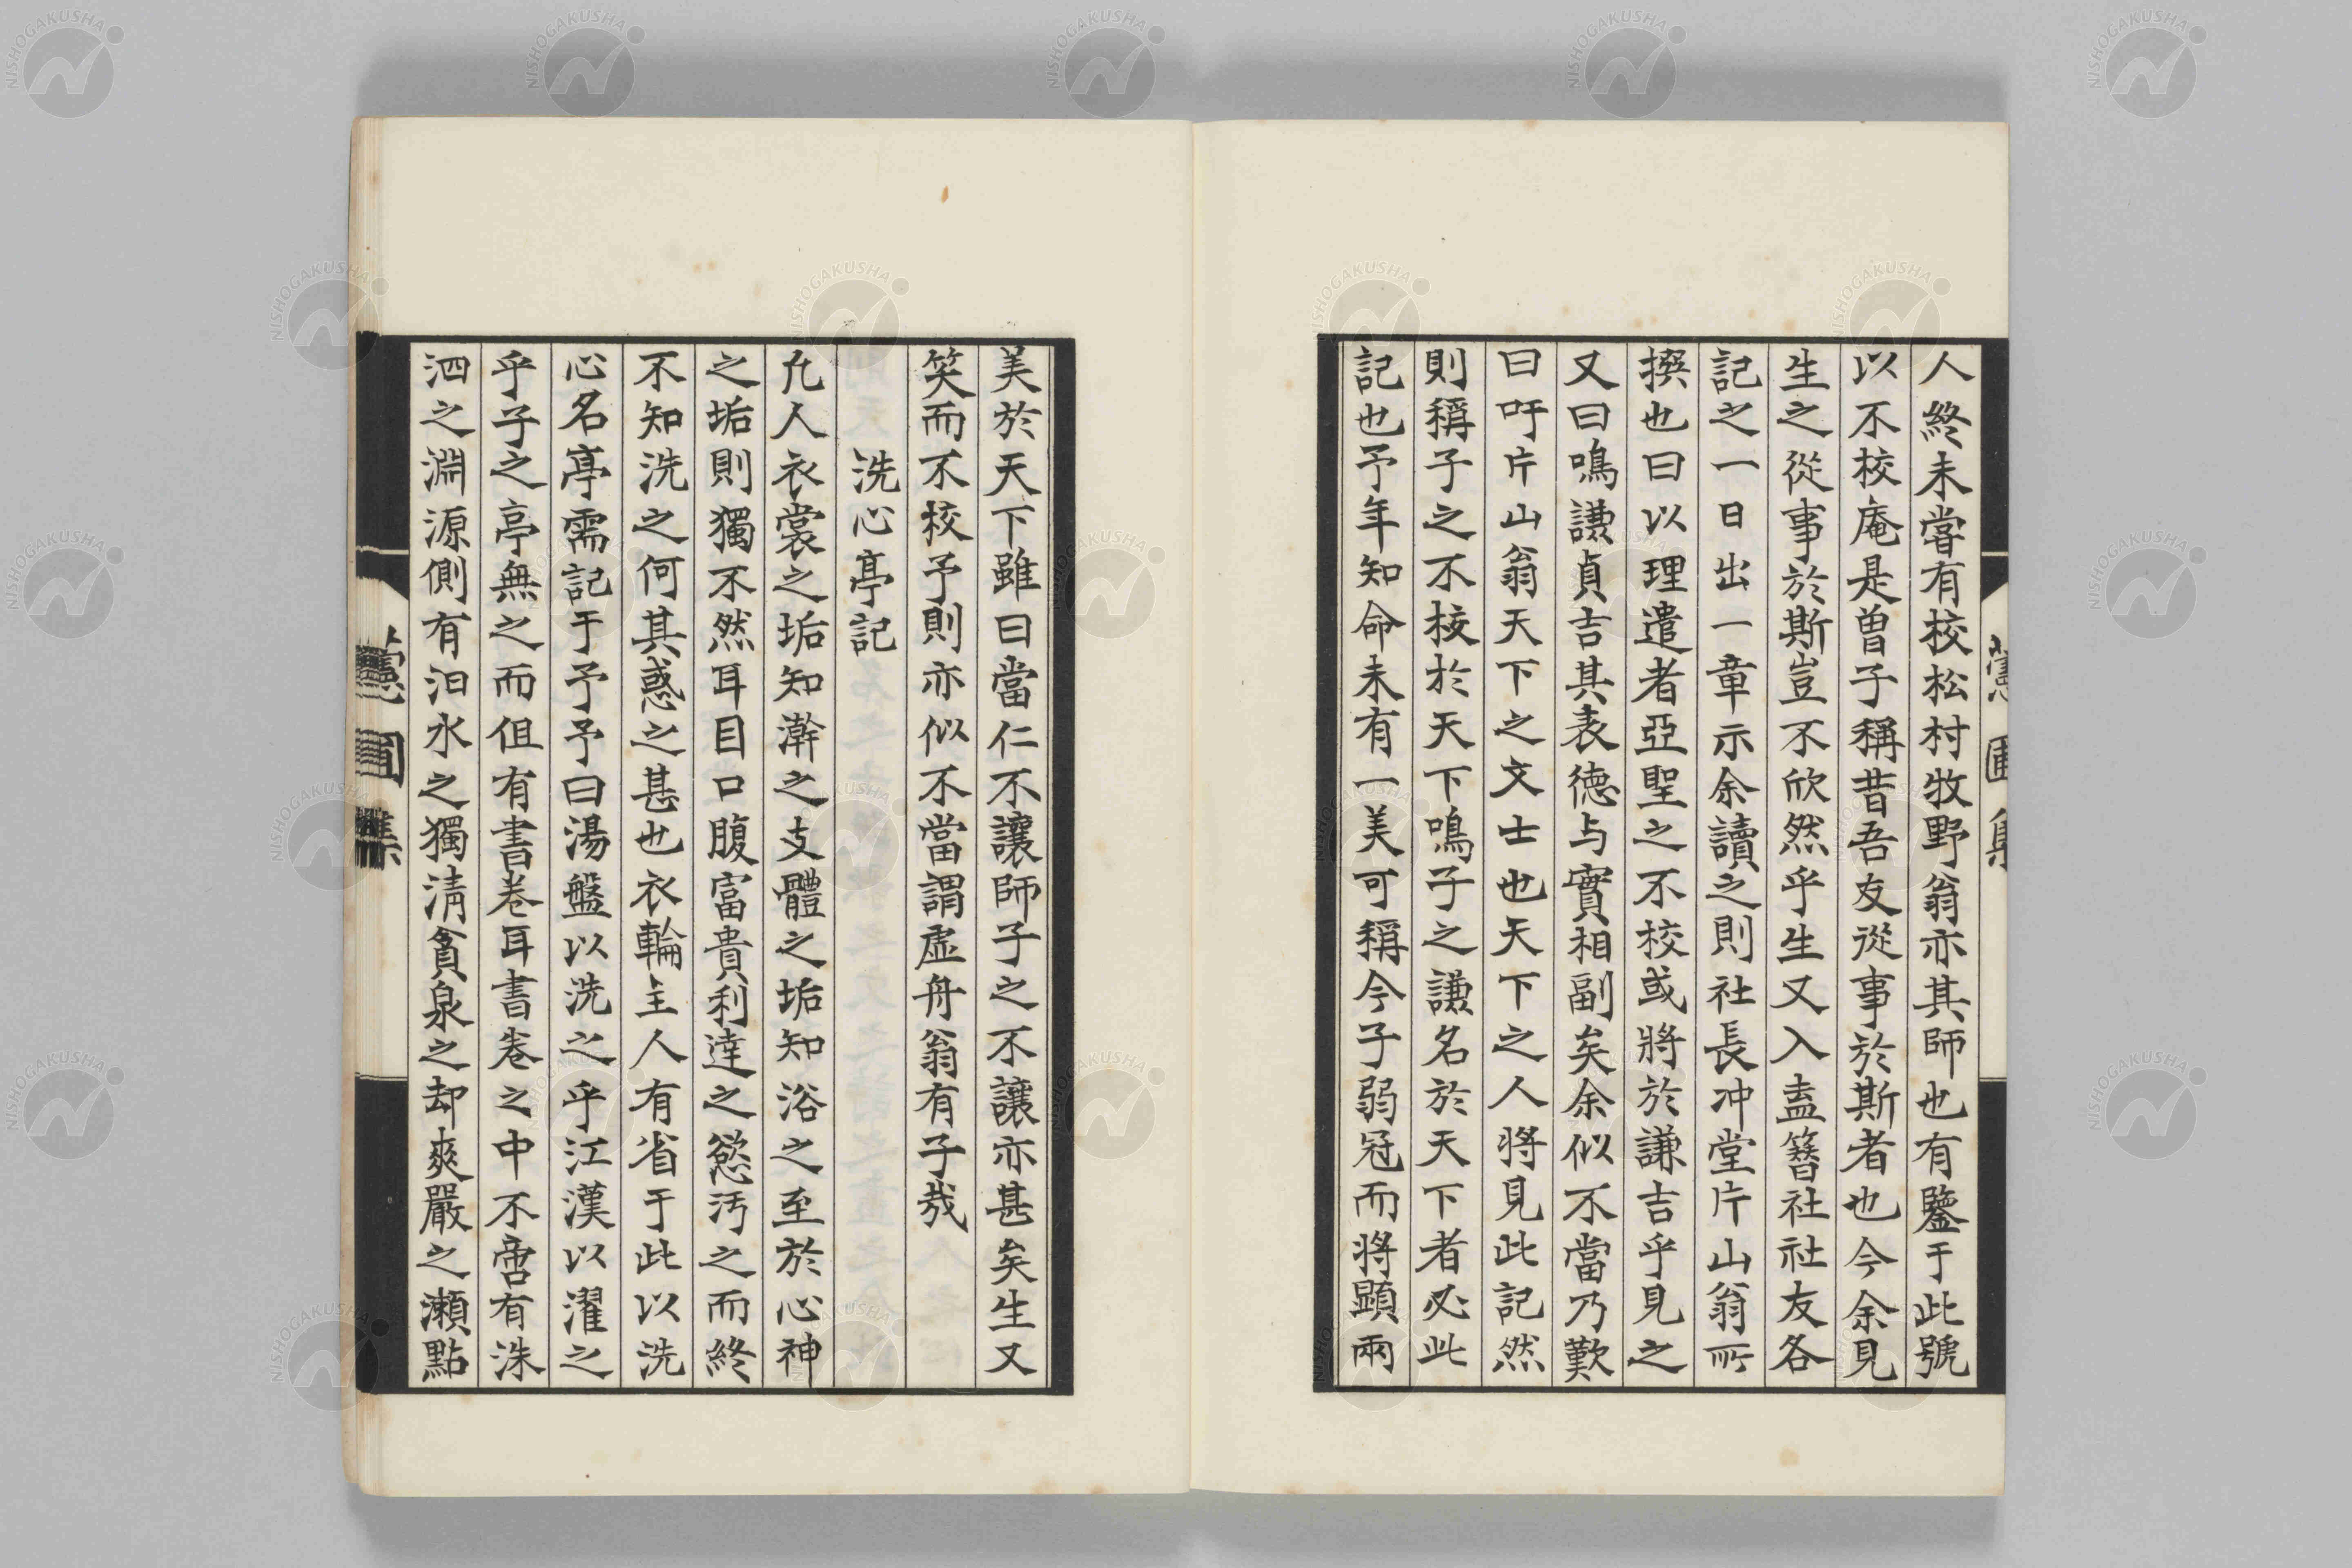 人終未甞有校松村牧野翁亦其師也有鑒于此號
以不校庵是曽子稱昔吾友從事於斯者也今余見
生之從事於斯豈不欣然乎生又入盍簪社社友各
記之一日出一章示余讀之則社長冲堂片山翁所
撰也曰以理遣者亞聖之不校或將於謙吉乎見之
又曰鳴謙貞吉其表德与實相副矣余似不當乃歎
曰吁片山翁天下之文士也天下之人將見此記然
則稱子之不校於天下鳴子之謙名於天下者必此
記也予年知命未有一美可稱今子弱冠而將顕兩
美於天下雖曰當仁不讓師子之不讓亦甚矣生又
笑而不校予則亦似不當謂虛舟翁有子哉
洗心亭記
凡人衣裳之垢知澣之支體之垢知浴之至於心神
之垢則獨不然耳目口腹富貴利達之慾汚之而終
不知洗之何其惑之甚也衣輪主人有省于此以洗
心名亭需記于予予曰湯盤以洗之乎江漢以濯之
乎子之亭無之而但有書卷耳書卷之中不啻有洙
泗之淵源側有汨水之獨淸貪泉之却爽嚴之瀬點
憲圃集
NISHOGAKUSHA